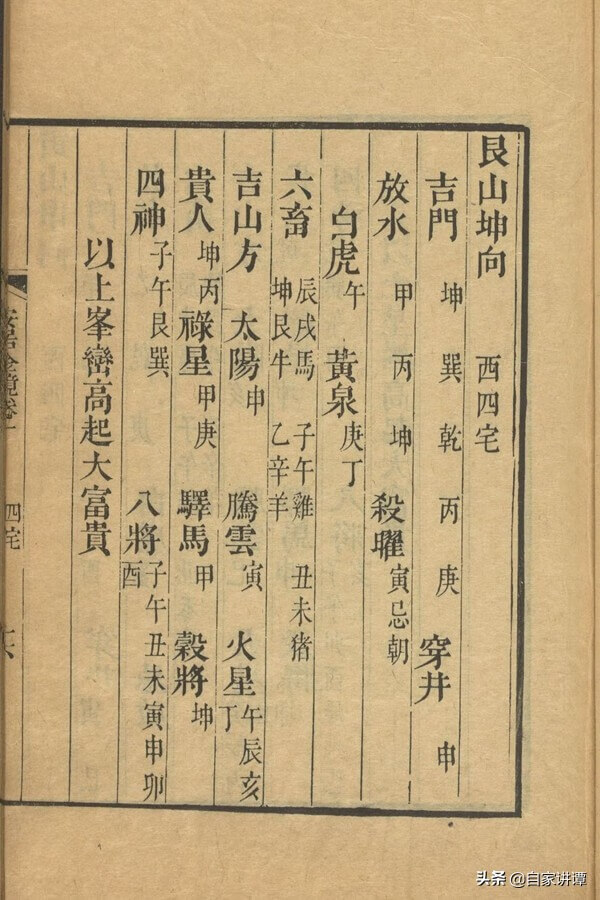 艮山坤向 西四宅
吉門 坤 巽 乾 丙 庚 穿井 申
放水 甲 丙 坤 殺曜 寅忌朝
白虎 午 黃泉 庚丁
六畜 辰戌馬 坤艮牛 子午雞 乙辛羊 丑未猪
吉山方 太陽 申 騰雲 寅 火星 午辰亥丁
貴人 坤丙 祿星 甲庚 驛馬 甲 穀將 坤
四神 子午艮巽 八將 子午丑未寅申卯酉
以上峯巒高起大富貴
四宅
头条 @自家讲谭